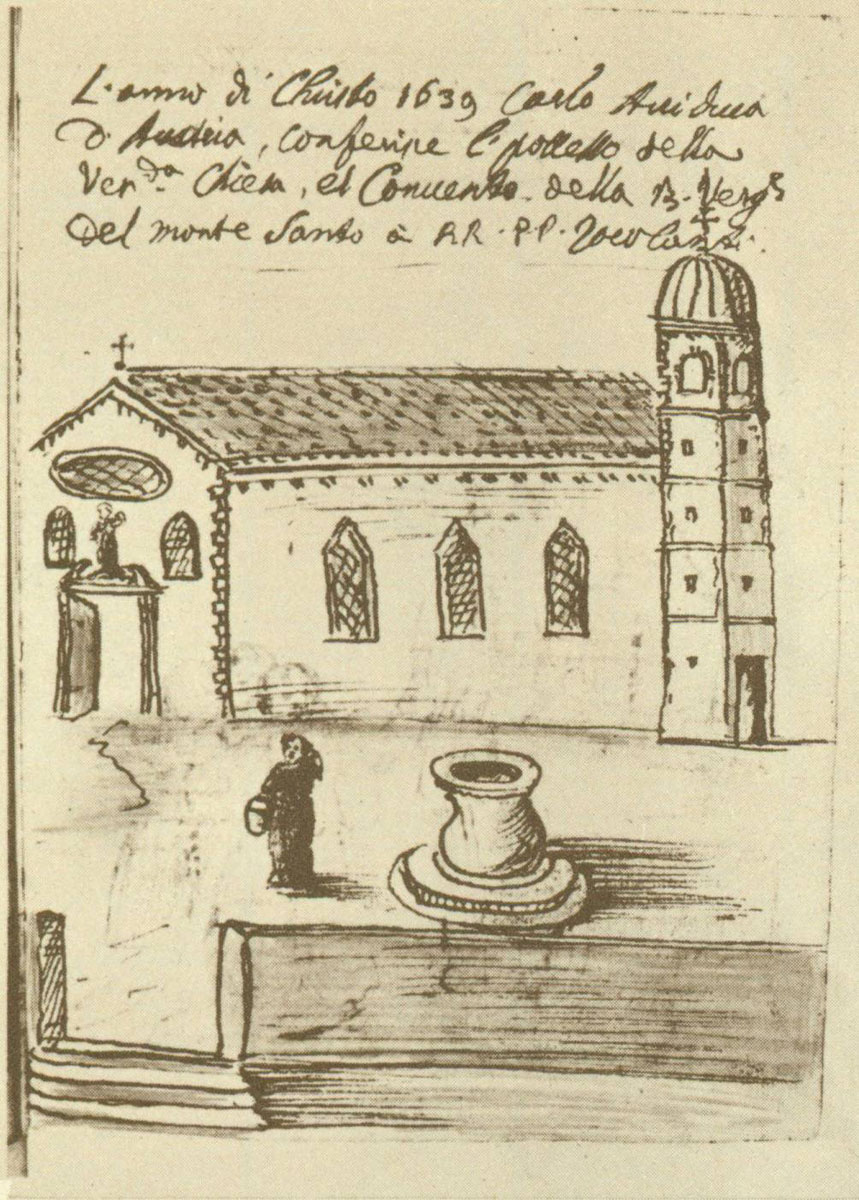 L'anno di Christo 1639 Carlo Arciduca
d'Austria, conferisce l'possesso della
Ver.da Chiesa, et Convento della B. Verg.e
Del monte Santo à RR. PP. Zocolanti.